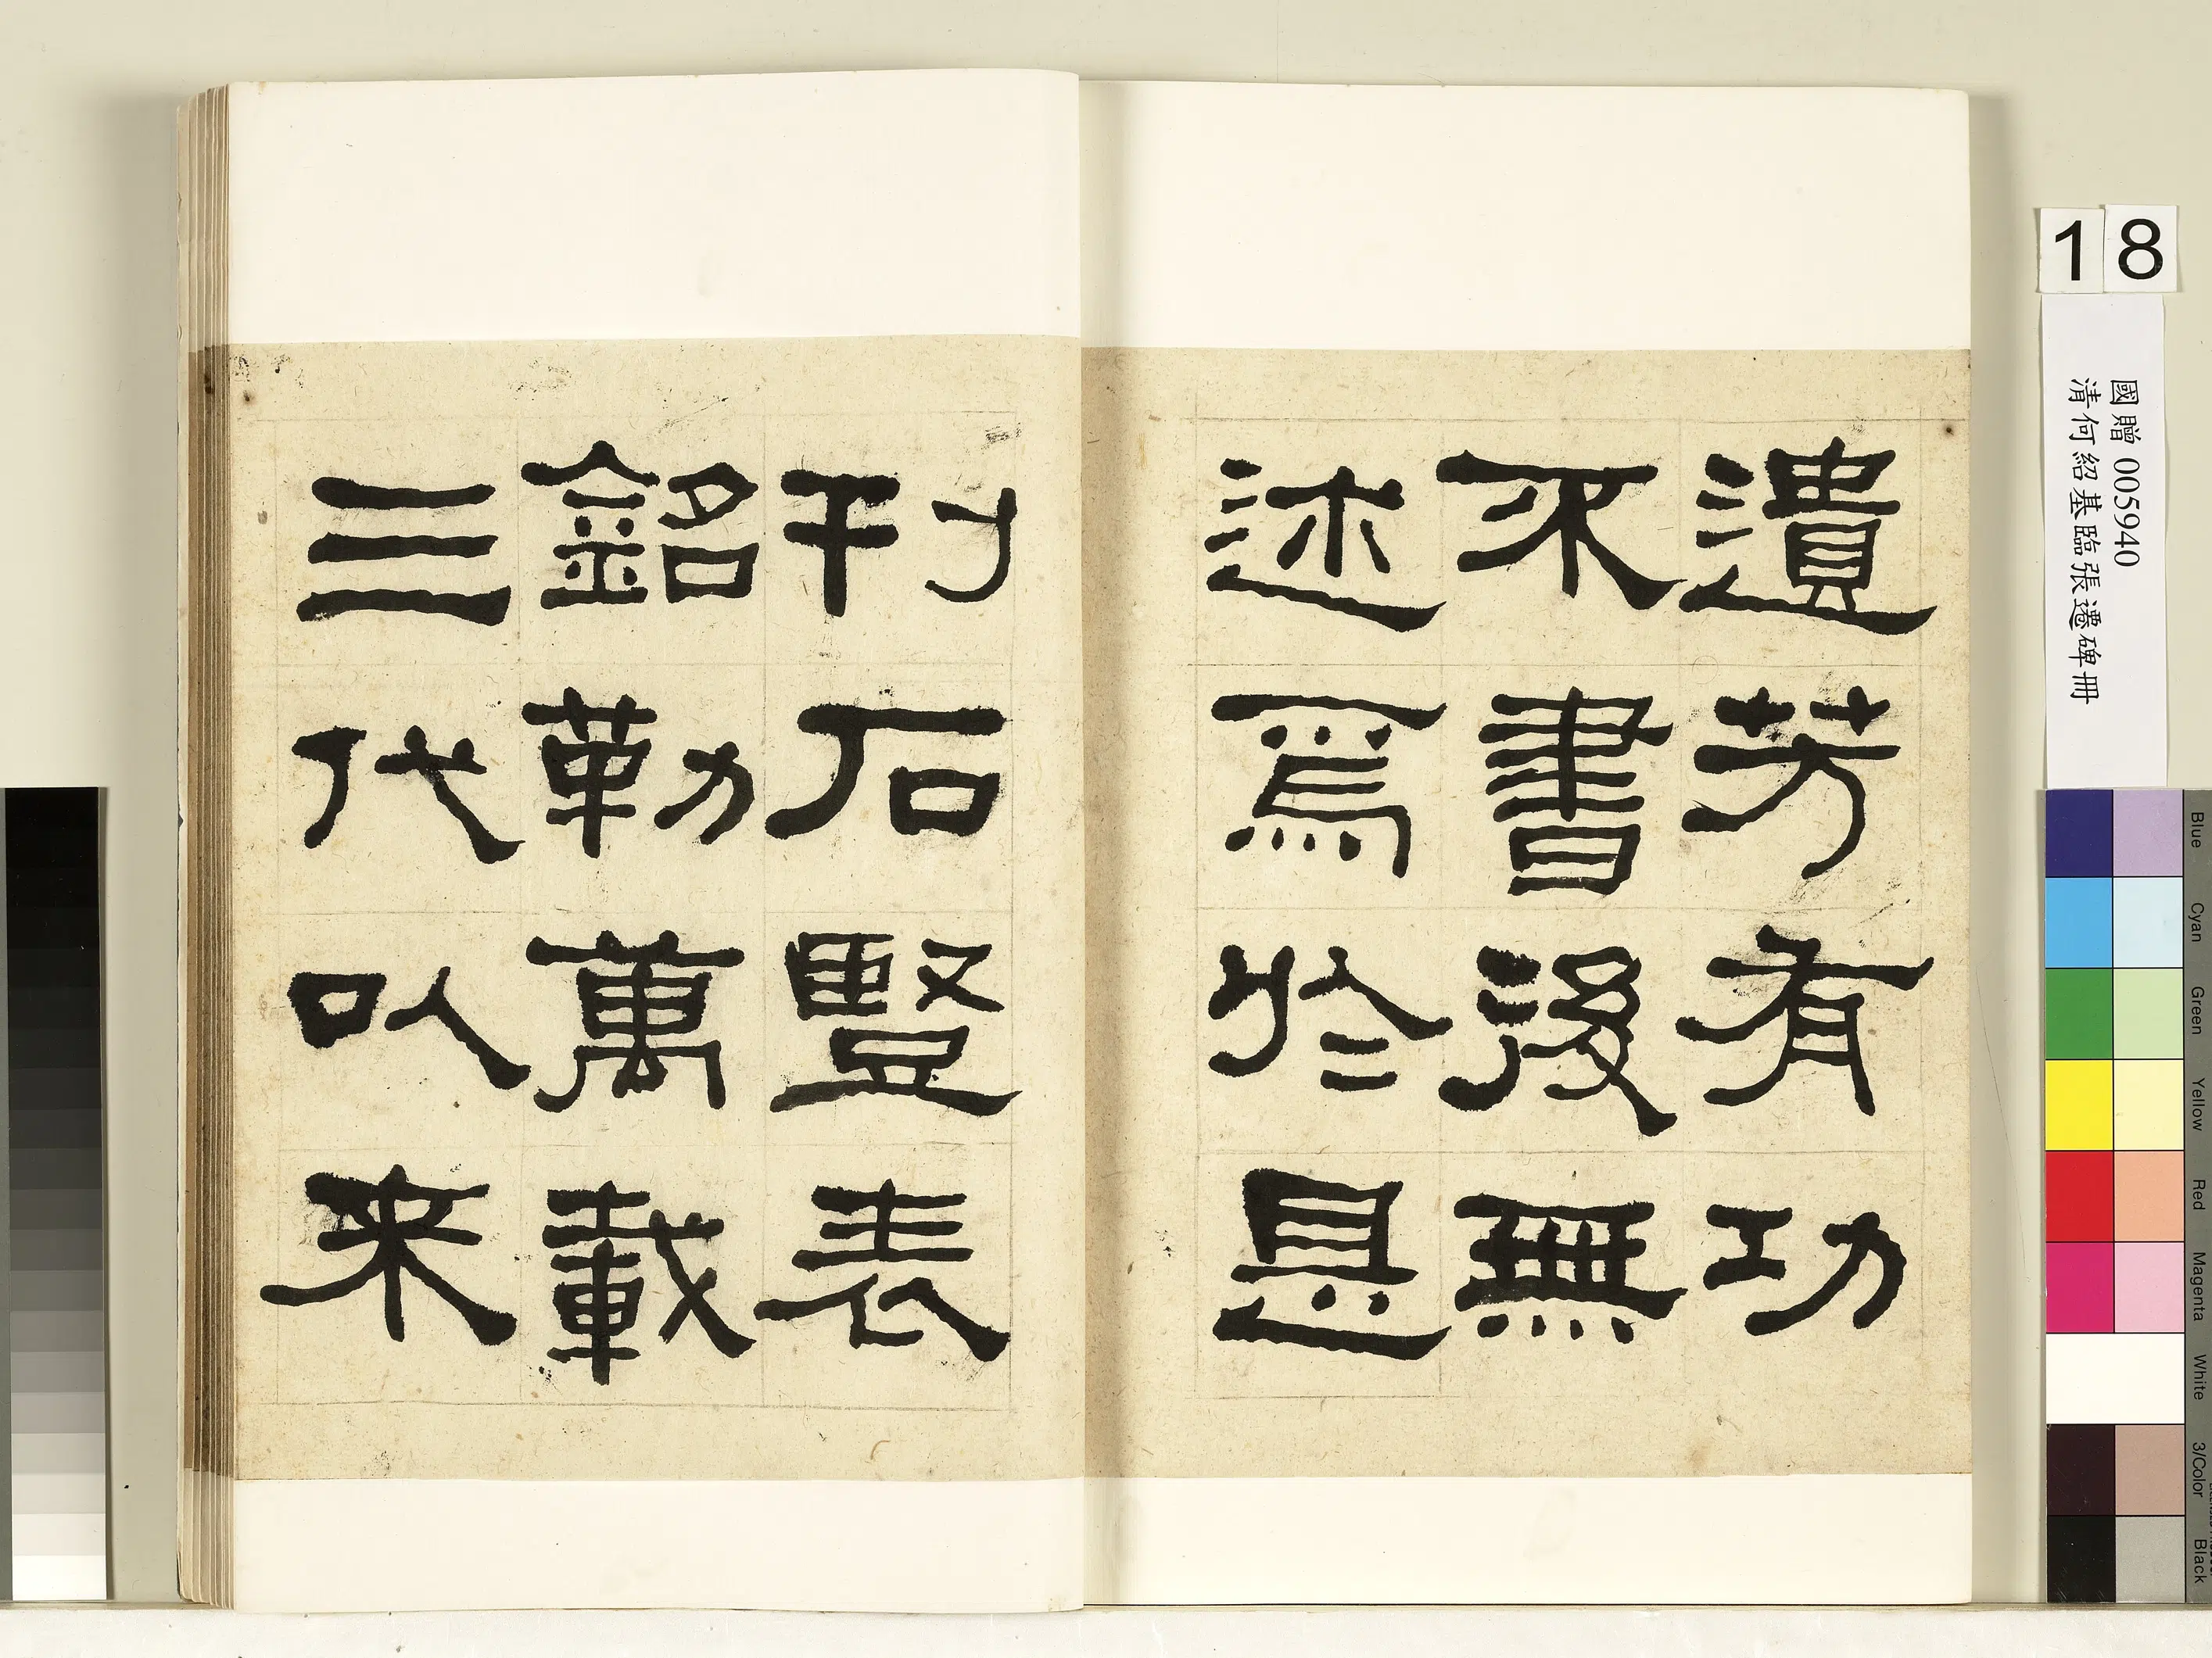 遺芳有功
不書後無
述焉於是
刊石豎表
銘勒萬載
三代以来
18
國贈 005940
清何紹基臨張遷碑冊
Blue
Cyan
Green
Yellow
Red
Magenta
White
3/Color
Black